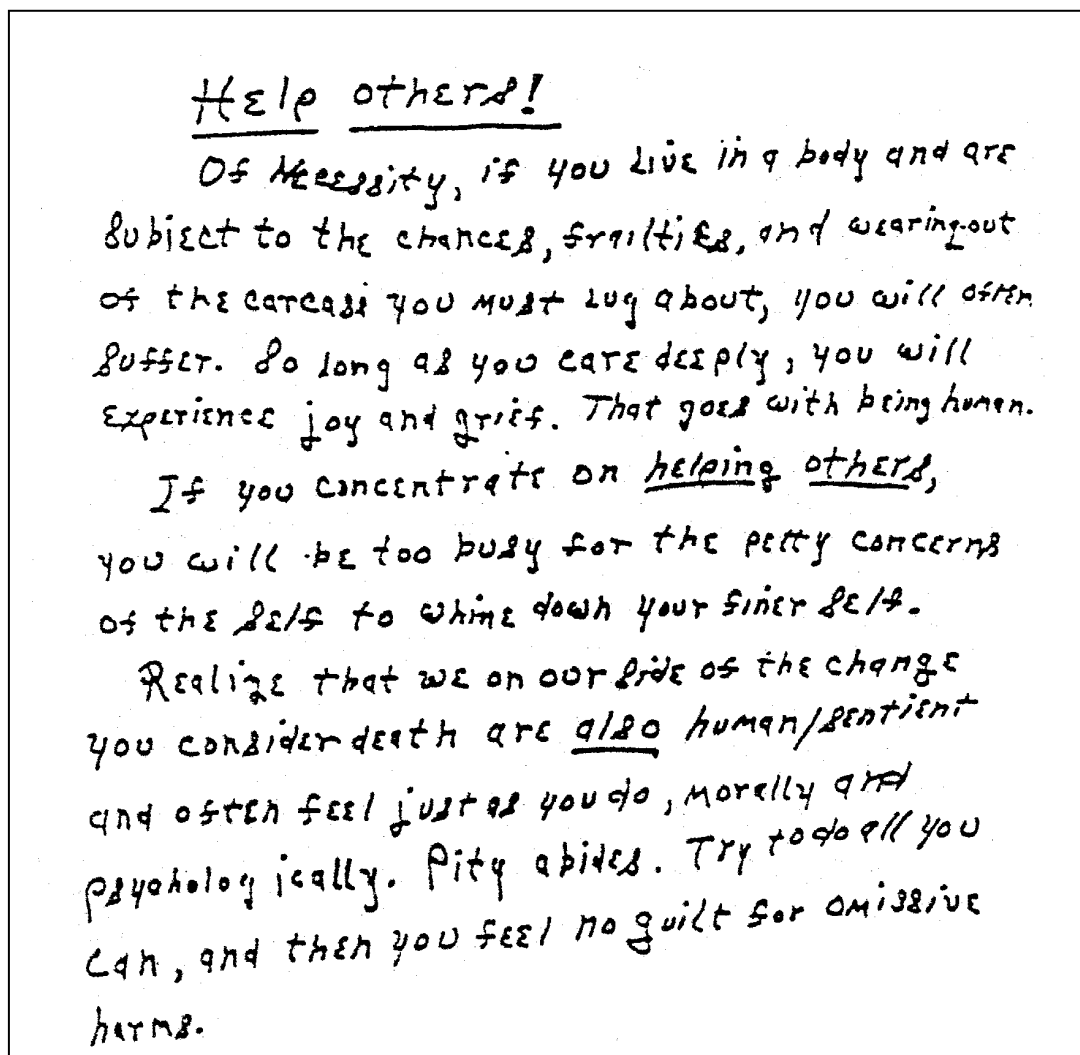 Help others!
Of Necessity, if you Live in a body and are
subject to the chances, frailties, and wearing-out
of the carcass you must lug about, you will often
suffer. So long as you care deeply, you will
experience joy and grief. That goes with being human.
If you concentrate on helping others,
you will be too busy for the petty concerns
of the self to whine down your finer self.
Realize that we on our side of the change
you consider death are also human/sentient
and often feel just as you do, morally and
psychologically. Pity abides. Try to do all you
can, and then you feel no guilt for omissive
harms.